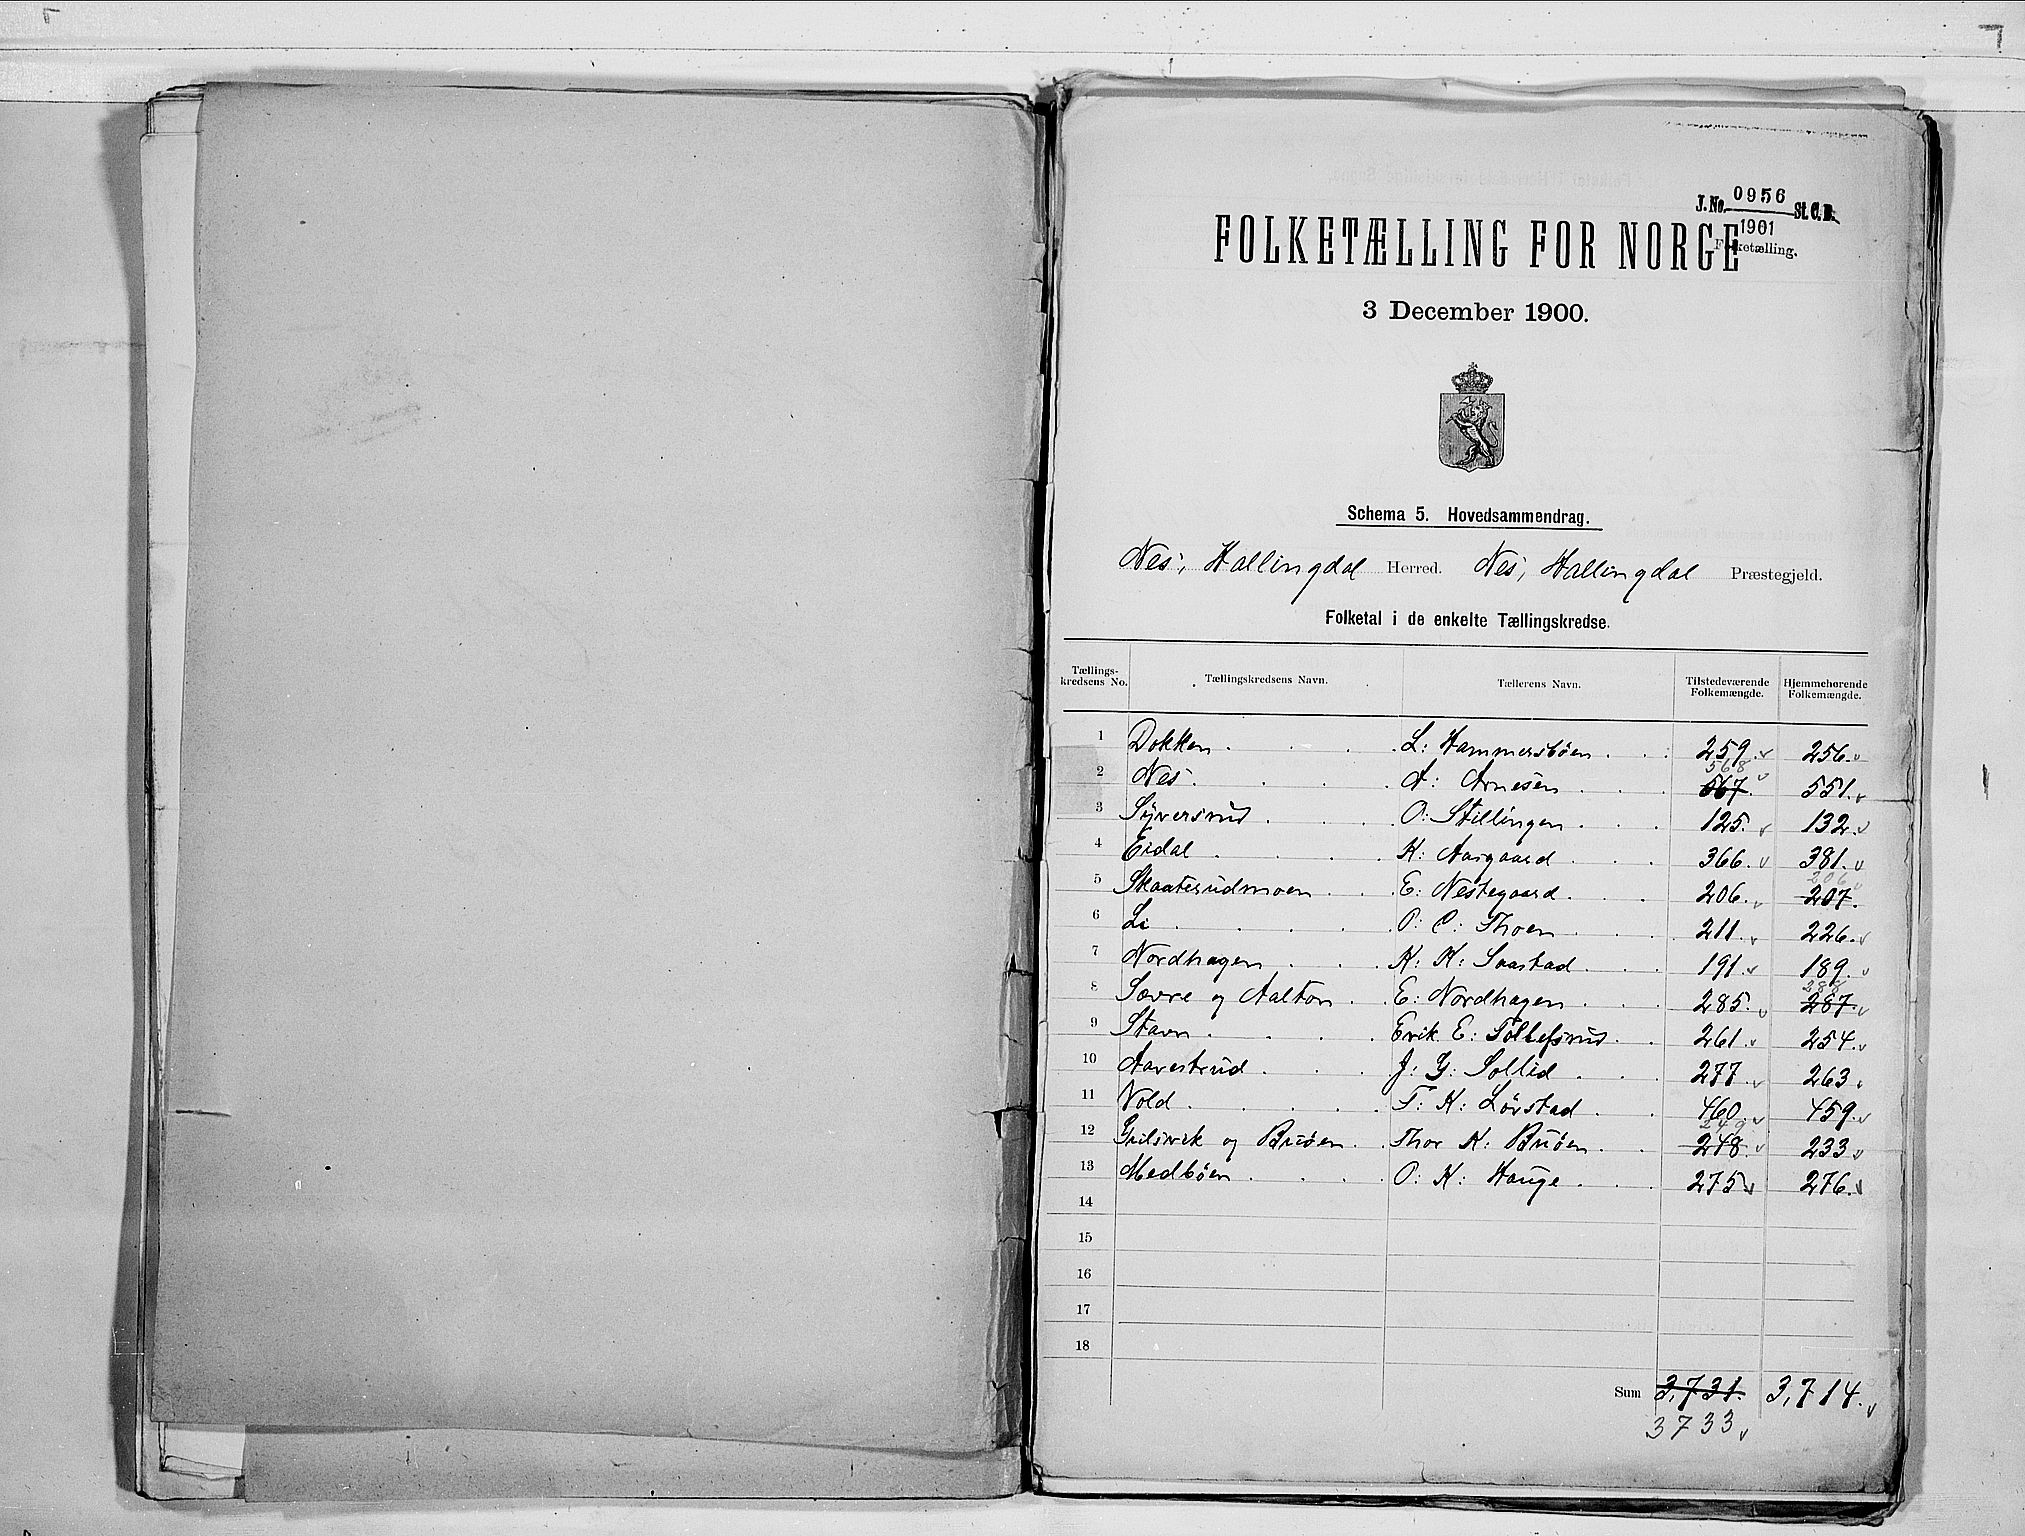 J. No. 0956 St. C. B.
1901
Folketælling.
FOLKETÆLLING FOR NORGE
3 December 1900.
Schema 5. Hovedsammendrag.
Nes, Hallingdal Herred. Nes, Hallingdal Præstegjeld.
Folketal i de enkelte Tællingskredse.
Tællings-kredsens No. Tællingskredsens Navn. Tællerens Navn. Tilstedeværende Folkemængde. Hjemmehørende Folkemængde.
1 Dokken L: Hammersbøen 259. 256.
568
2 Nes A: Arnesen 567. 551.
3 Syversrud O: Stillingen 125. 132.
4 Eidal K: Aasgaard 366. 381.
206
5 Skaaterudmoen E: Nestegaard 206. 207.
6 Li O: C: Thoen 211. 226.
7 Nordhagen K: K: Saastad 191. 189.
288
8 Sævre og Aalton E: Nordhagen 285. 287.
9 Stavn Erik E: Tollefsrud 261. 254.
10 Aavestrud J: G: Sollid 277. 263.
11 Vold T: K: Lørstad 460. 459.
249
12 og Bruøen Thor K: Bruøen 248. 233.
13 Medbøen O: K: Hauge 275. 276.
14
15
16
17
18
Sum 3,731. 3,714.
3733